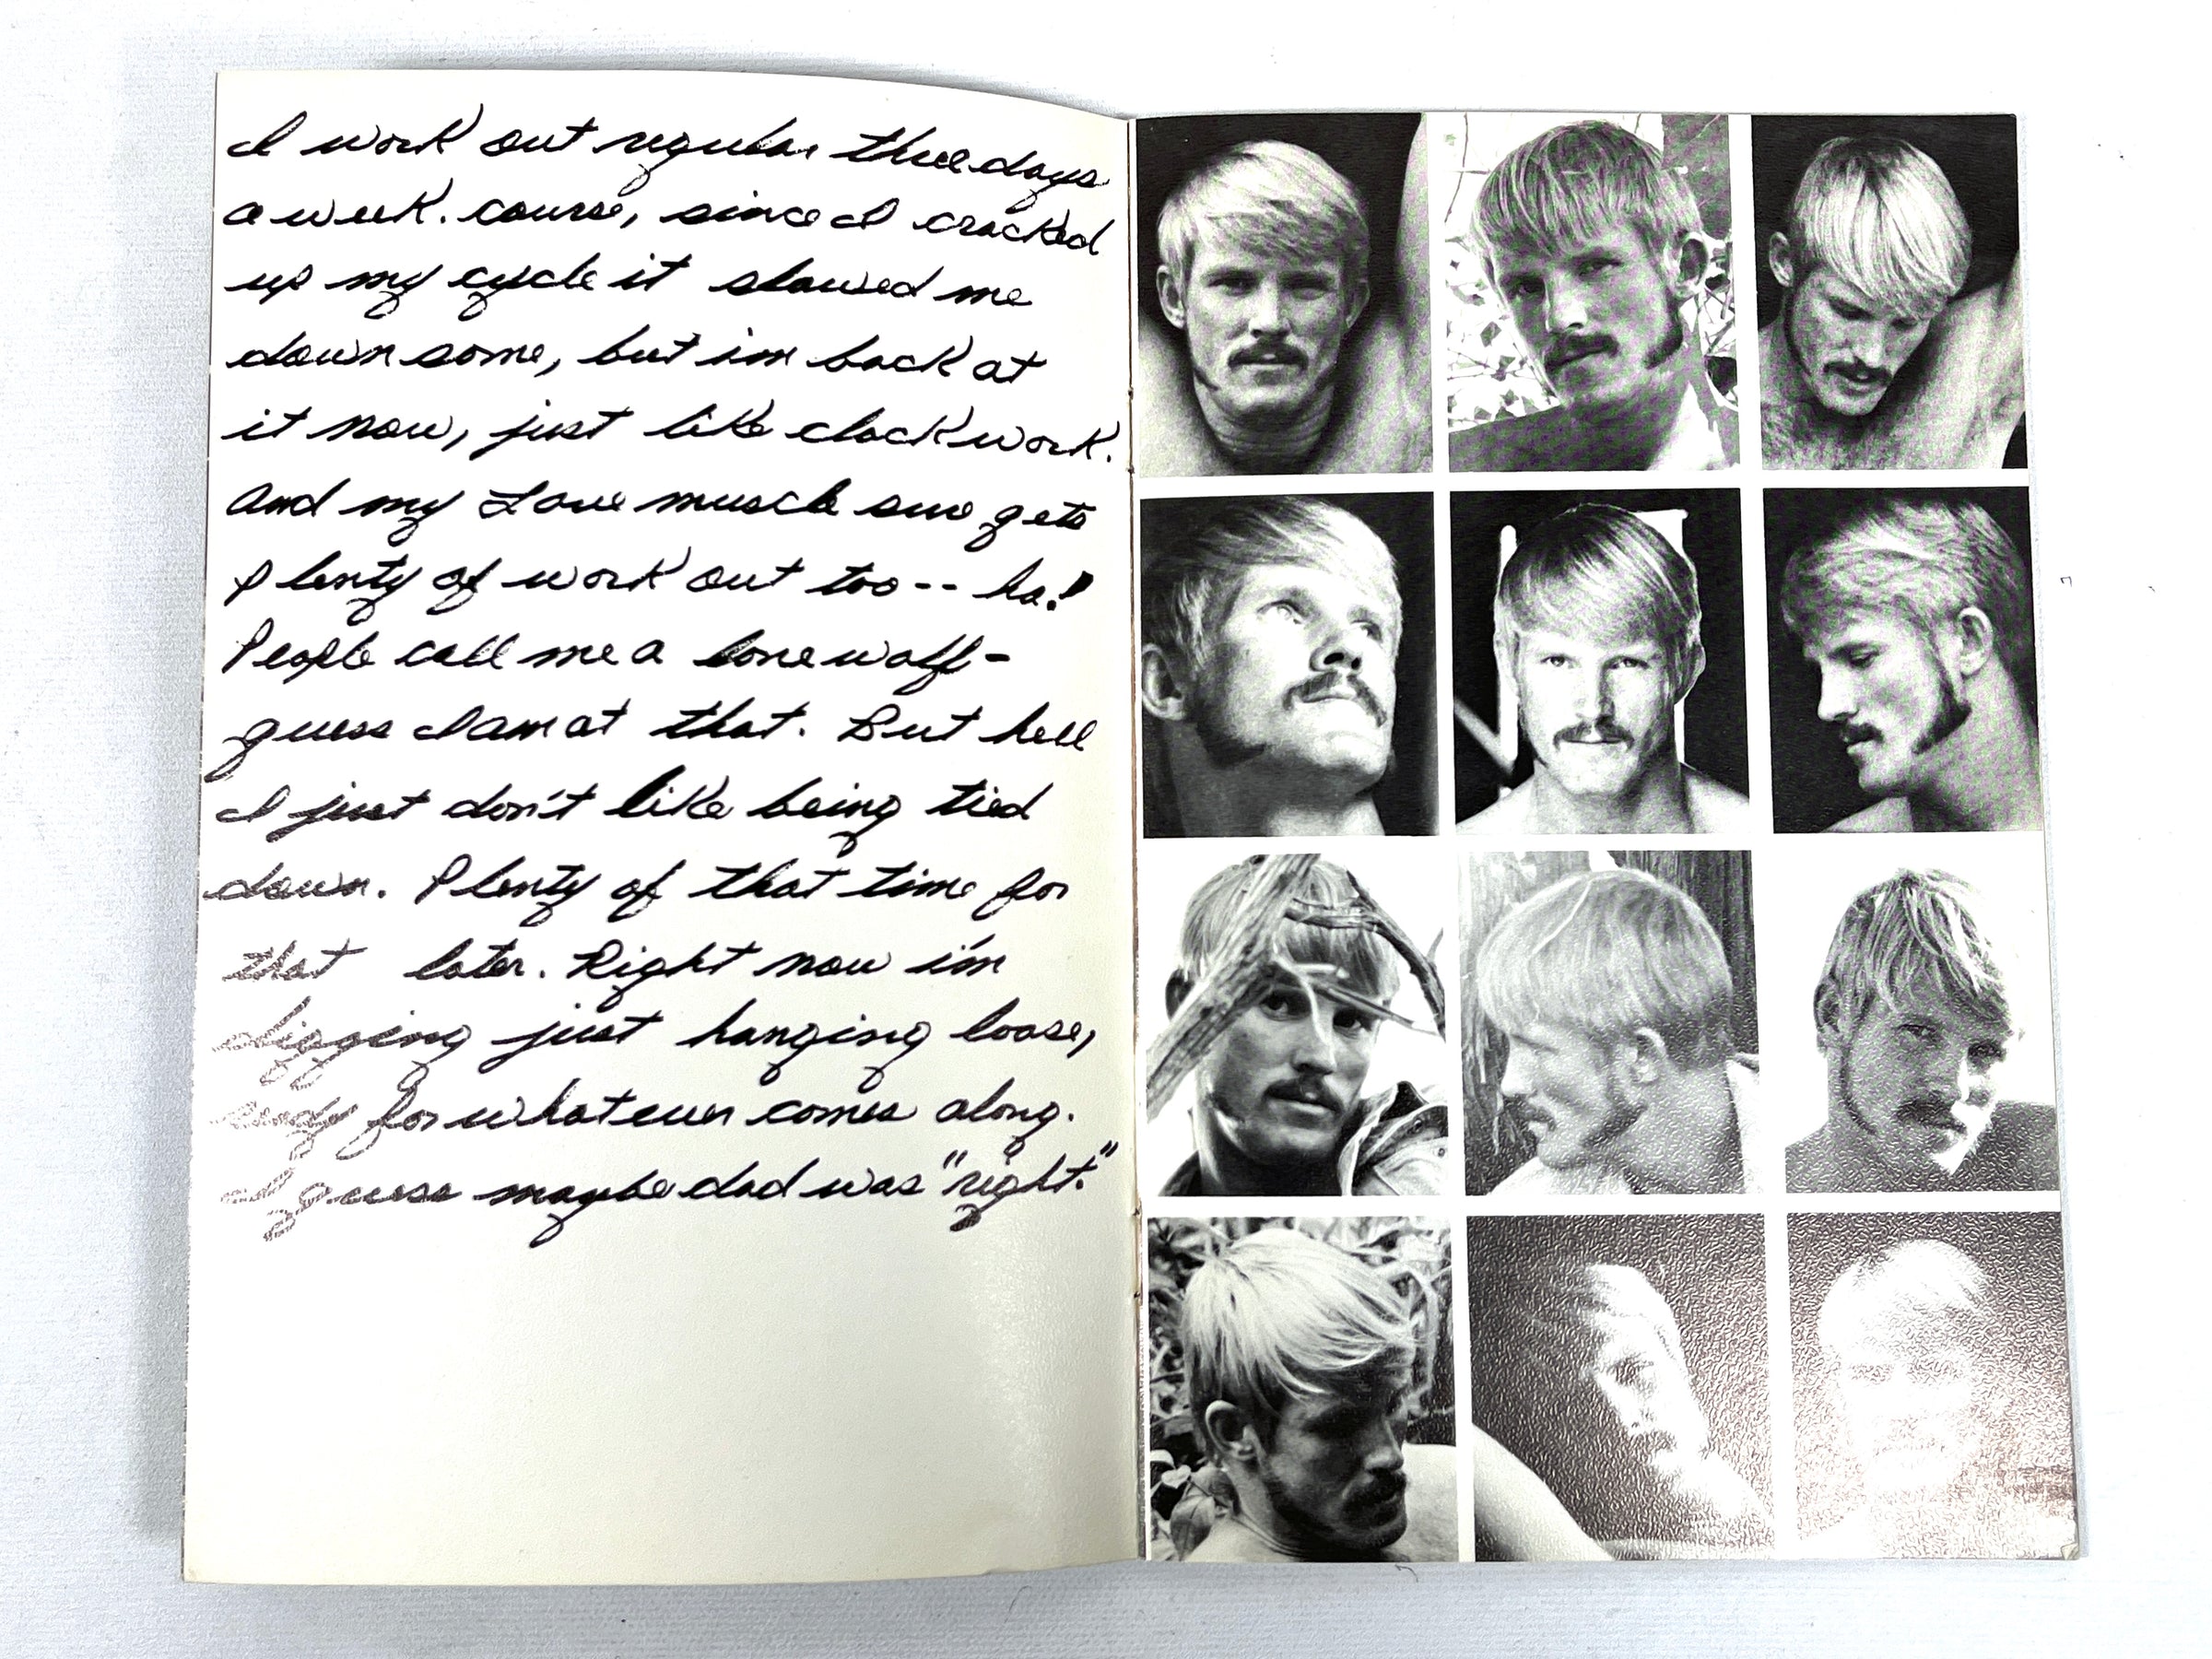 I work out regular three days
a week. course, since I cracked
up my cycle it slowed me
down some, but i'm back at
it now, just like clockwork.
And my Love muscle sure gets
plenty of work out too-- ha!
People call me a lone wolf-
guess I am at that. But hell
I just don't like being tied
down. Plenty of that time for
that later. Right now i'm
digging just hanging loose,
ready for whatever comes along.
I guess maybe dad was "right."